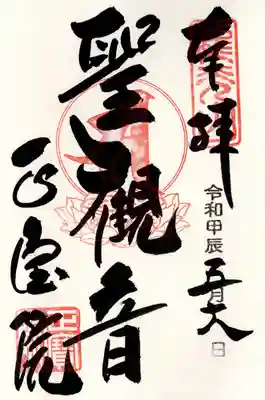 奉拝
令和甲辰五月 日
聖観音
正宝院